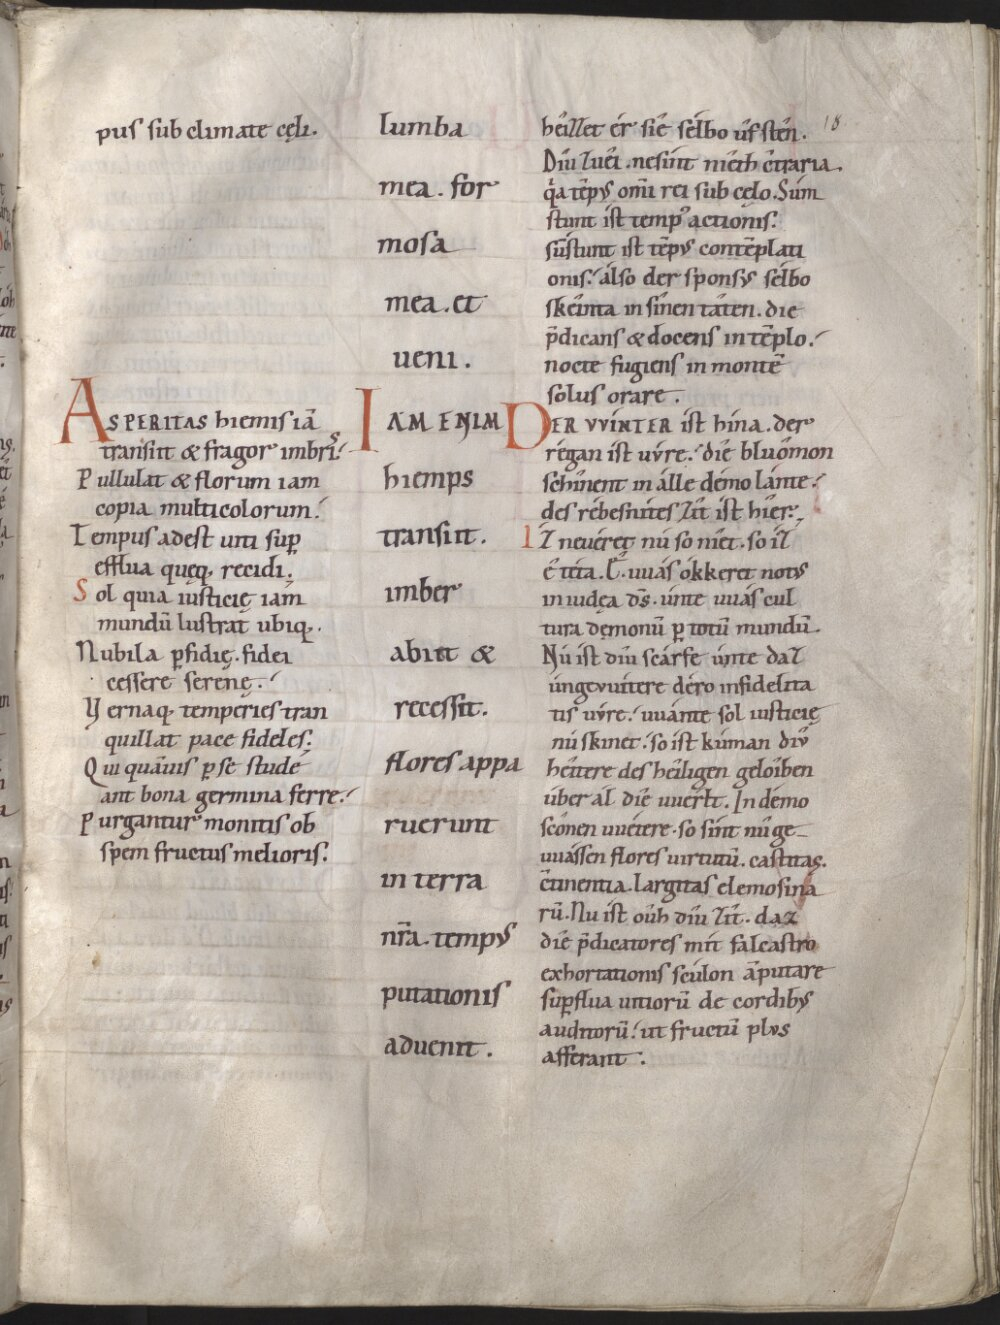 pus sub climate cęli.
Asperitas hiemis iā
transiit & fragor imbris:
Pullulat & florum iam
copia multicolorum:
Tempus adest uti suꝑ
efflua queq, recidi.
Sol quia iusticię iam
mundū lustrat ubiq,.
Nubila ꝑfidię. fidei
cessere serenę.
Vernaq, temperies tran
quillat pace fideles:
Qui quāuis ꝑ se studē
ant bona germina ferre:
Purgantur monitis ob
spem fructus melioris:
lumba
mea. for
mosa
mea. et
ueni.
IAM ENIM
hiemps
transiit.
imber
abiit &
recessit.
flores appa
ruerunt
in terra
nr̄a. tempꝰ
putationis
aduenit.
18
héillet ér sie sélbo ûf stên.
Díu zuêi. ne sínt níeth c̄traria.
q̇a tēpꝰ om̄i rei sub cęlo. Súm
stunt ist tempꝰ actionis:
sūstunt ist tēpꝰ contēplati
onis: álso der sponsꝰ sélbo
skéinta in sînen tâten. die
p̄dicans & docens in tēplo:
nocte fugiens in montē
solus orare.
DER VVINTER ist hina. der
régan ist uure: die bluomon
schînent in álle démo lánte:
des rébesnites zît ist hîer.
Iz neuéret nú so níet. so iz
ē téta. ł. uuás ókkeret notꝰ
in iudęa d̄s. únte uuás cul
tura dęmonū ꝑ totū mundū.
Nú ist díu scárfe únte daz
úngeuuitere déro infidelita
tis uúre: uuánte sol iusticię
nú skînet: so ist kúman díu
héitere des héiligen gelóiben
úber ál die uuérlt. In démo
scônen uuétere. so sint nû ge
uuássen flores uirtutū. castitas.
c̄tinentia. largitas elemosina
rū. Nu ist óuh díu zît. daz
die p̄dicatores mit falcastro
exhortationis scúlon āputare
suꝑflua uitiorū de cordibꝰ
auditorū: ut fructū plus
afferant: